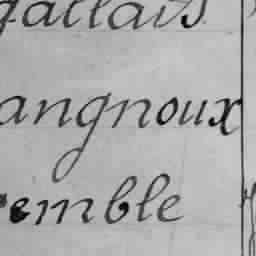 gallais
angnoux
remble